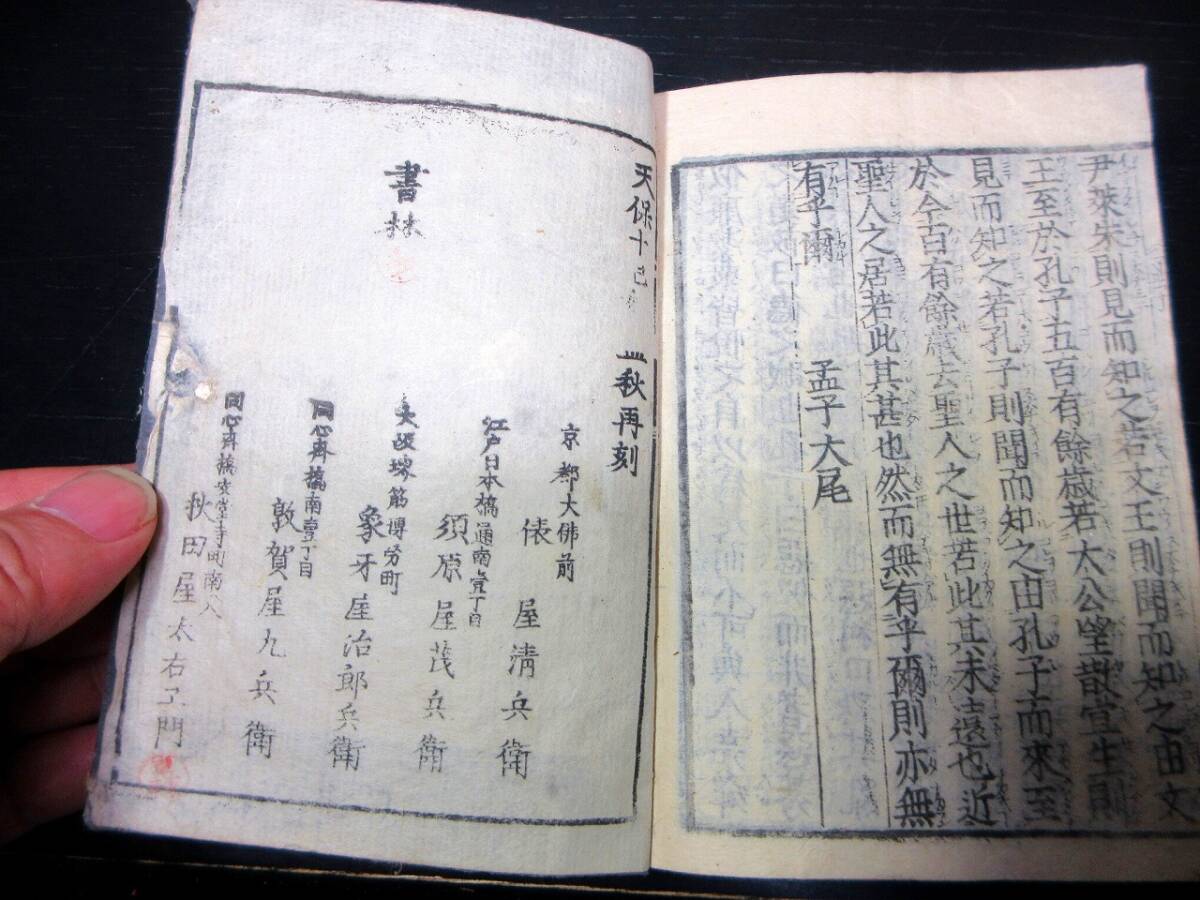 尹萊朱則見而知之若文王則聞而知之由文
王至於孔子五百有餘歲若太公望散宜生則
見而知之若孔子則聞而知之由孔子而來至
於今百有餘歲去聖人之世若此其未遠也近
聖人之居若此其甚也然而無有乎爾則亦無
有乎爾
孟子大尾
天保十己
秋再刻
書林
京都大佛前
俵屋清兵衛
江戸日本橋通南壹丁目
須原屋茂兵衛
大坂堺筋博労町
象牙屋治郎兵衛
同心斉橋南壹丁目
敦賀屋九兵衛
同心斉橋安堂寺町南入
秋田屋太右ヱ門